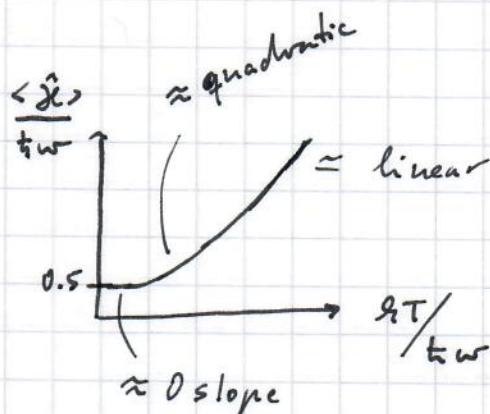 ≈ quadratic
<Ĥ>
ħω
≃ linear
0.5
kT/ħω
≈ 0 slope